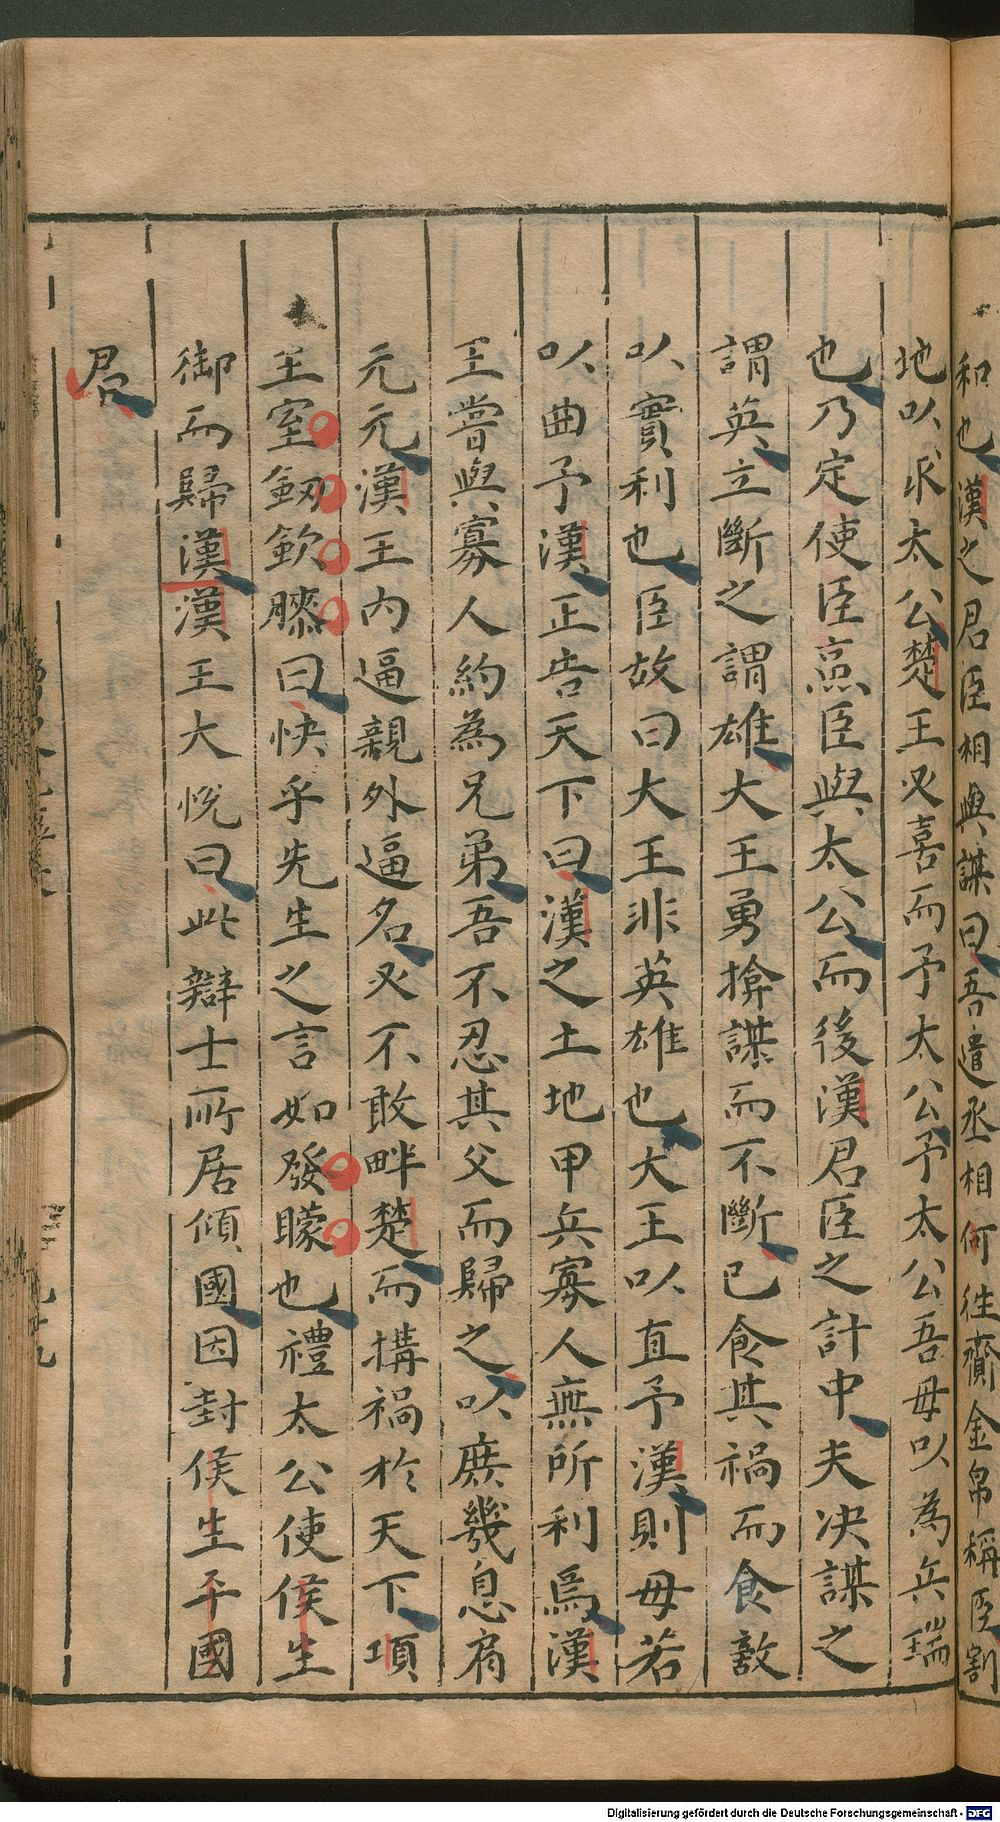 和也漢之君臣相與謀曰吾遣丞相何徃齎金帛稱臣割
地以求太公楚王必喜而予太公予太公吾毋以為兵端
也乃定使臣烹臣與太公而後漢君臣之計中夫决謀之
謂英立斷之謂雄大王勇揜謀而不斷已食其禍而食敵
以實利也臣故曰大王非英雄也大王以直予漢則毋若
以曲予漢正告天下曰漢之土地甲兵寡人無所利焉漢
王嘗與寡人約為兄弟吾不忍其父而歸之以庶幾息肩
元元漢王内逼親外逼名必不敢畔楚而搆禍於天下項
王室劒欽膝曰快乎先生之言如發矇也禮太公使侯生
御而歸漢漢王大悅曰此辯士所居傾國因封侯生平國
君
Digitalisierung gefördert durch die Deutsche Forschungsgemeinschaft - DFG